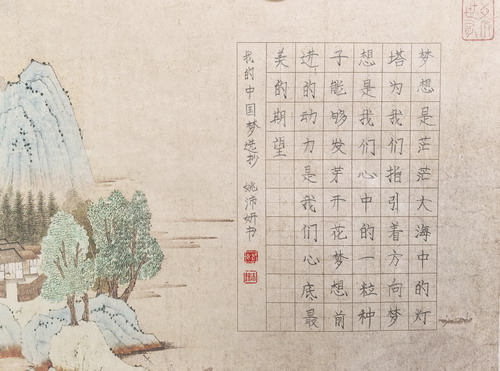 梦想是茫茫大海中的灯
塔为我们指引着方向梦
想是我们心中的一粒种
子能够发芽开花梦想前
进的动力是我们心底最
美的期望
我的中国梦选抄 姚沛妍书